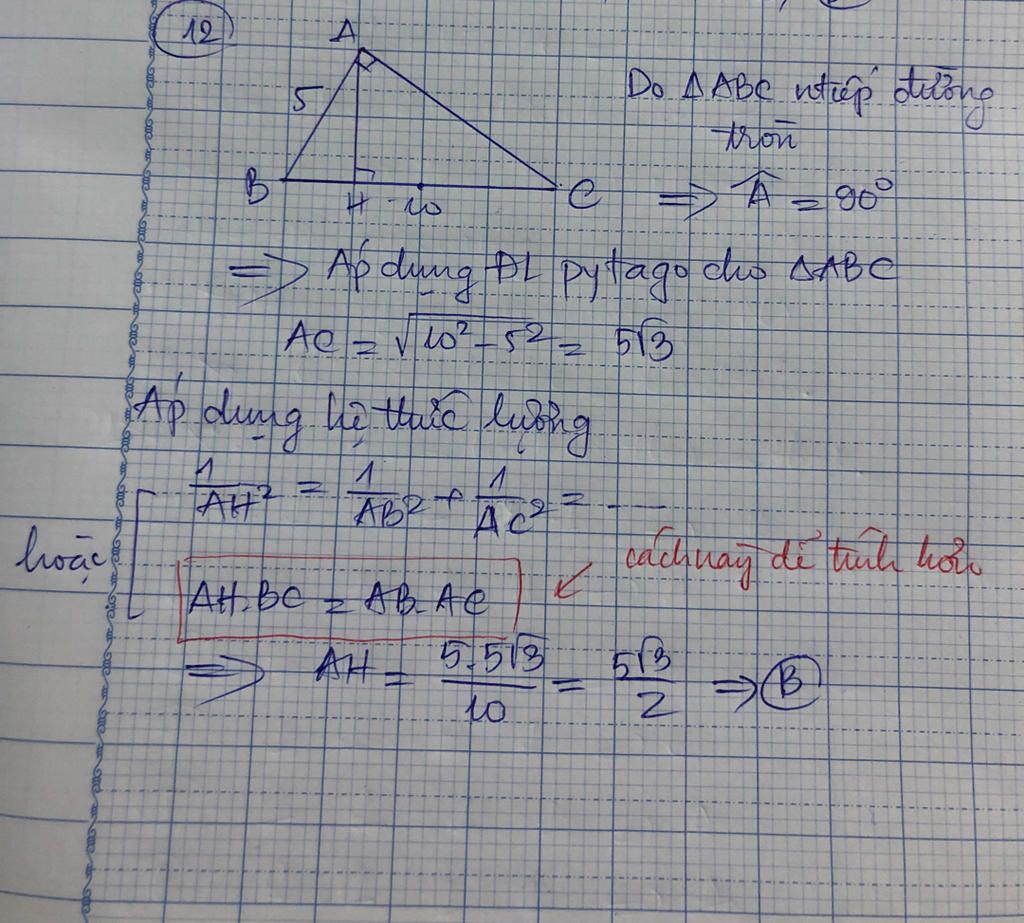 12
A
5
B
H
10
C
Do ΔABC ntiếp đường
tròn
=> Â = 90°
=> Áp dụng ĐL pytago cho ΔABC
AC = √(10² - 5²) = 5√3
Áp dụng hệ thức lượng
1/AH² = 1/AB² + 1/AC² = ....
hoặc
cách này dễ tính hơn
AH.BC = AB.AC
=> AH = 5.5√3/10 = 5√3/2 => B